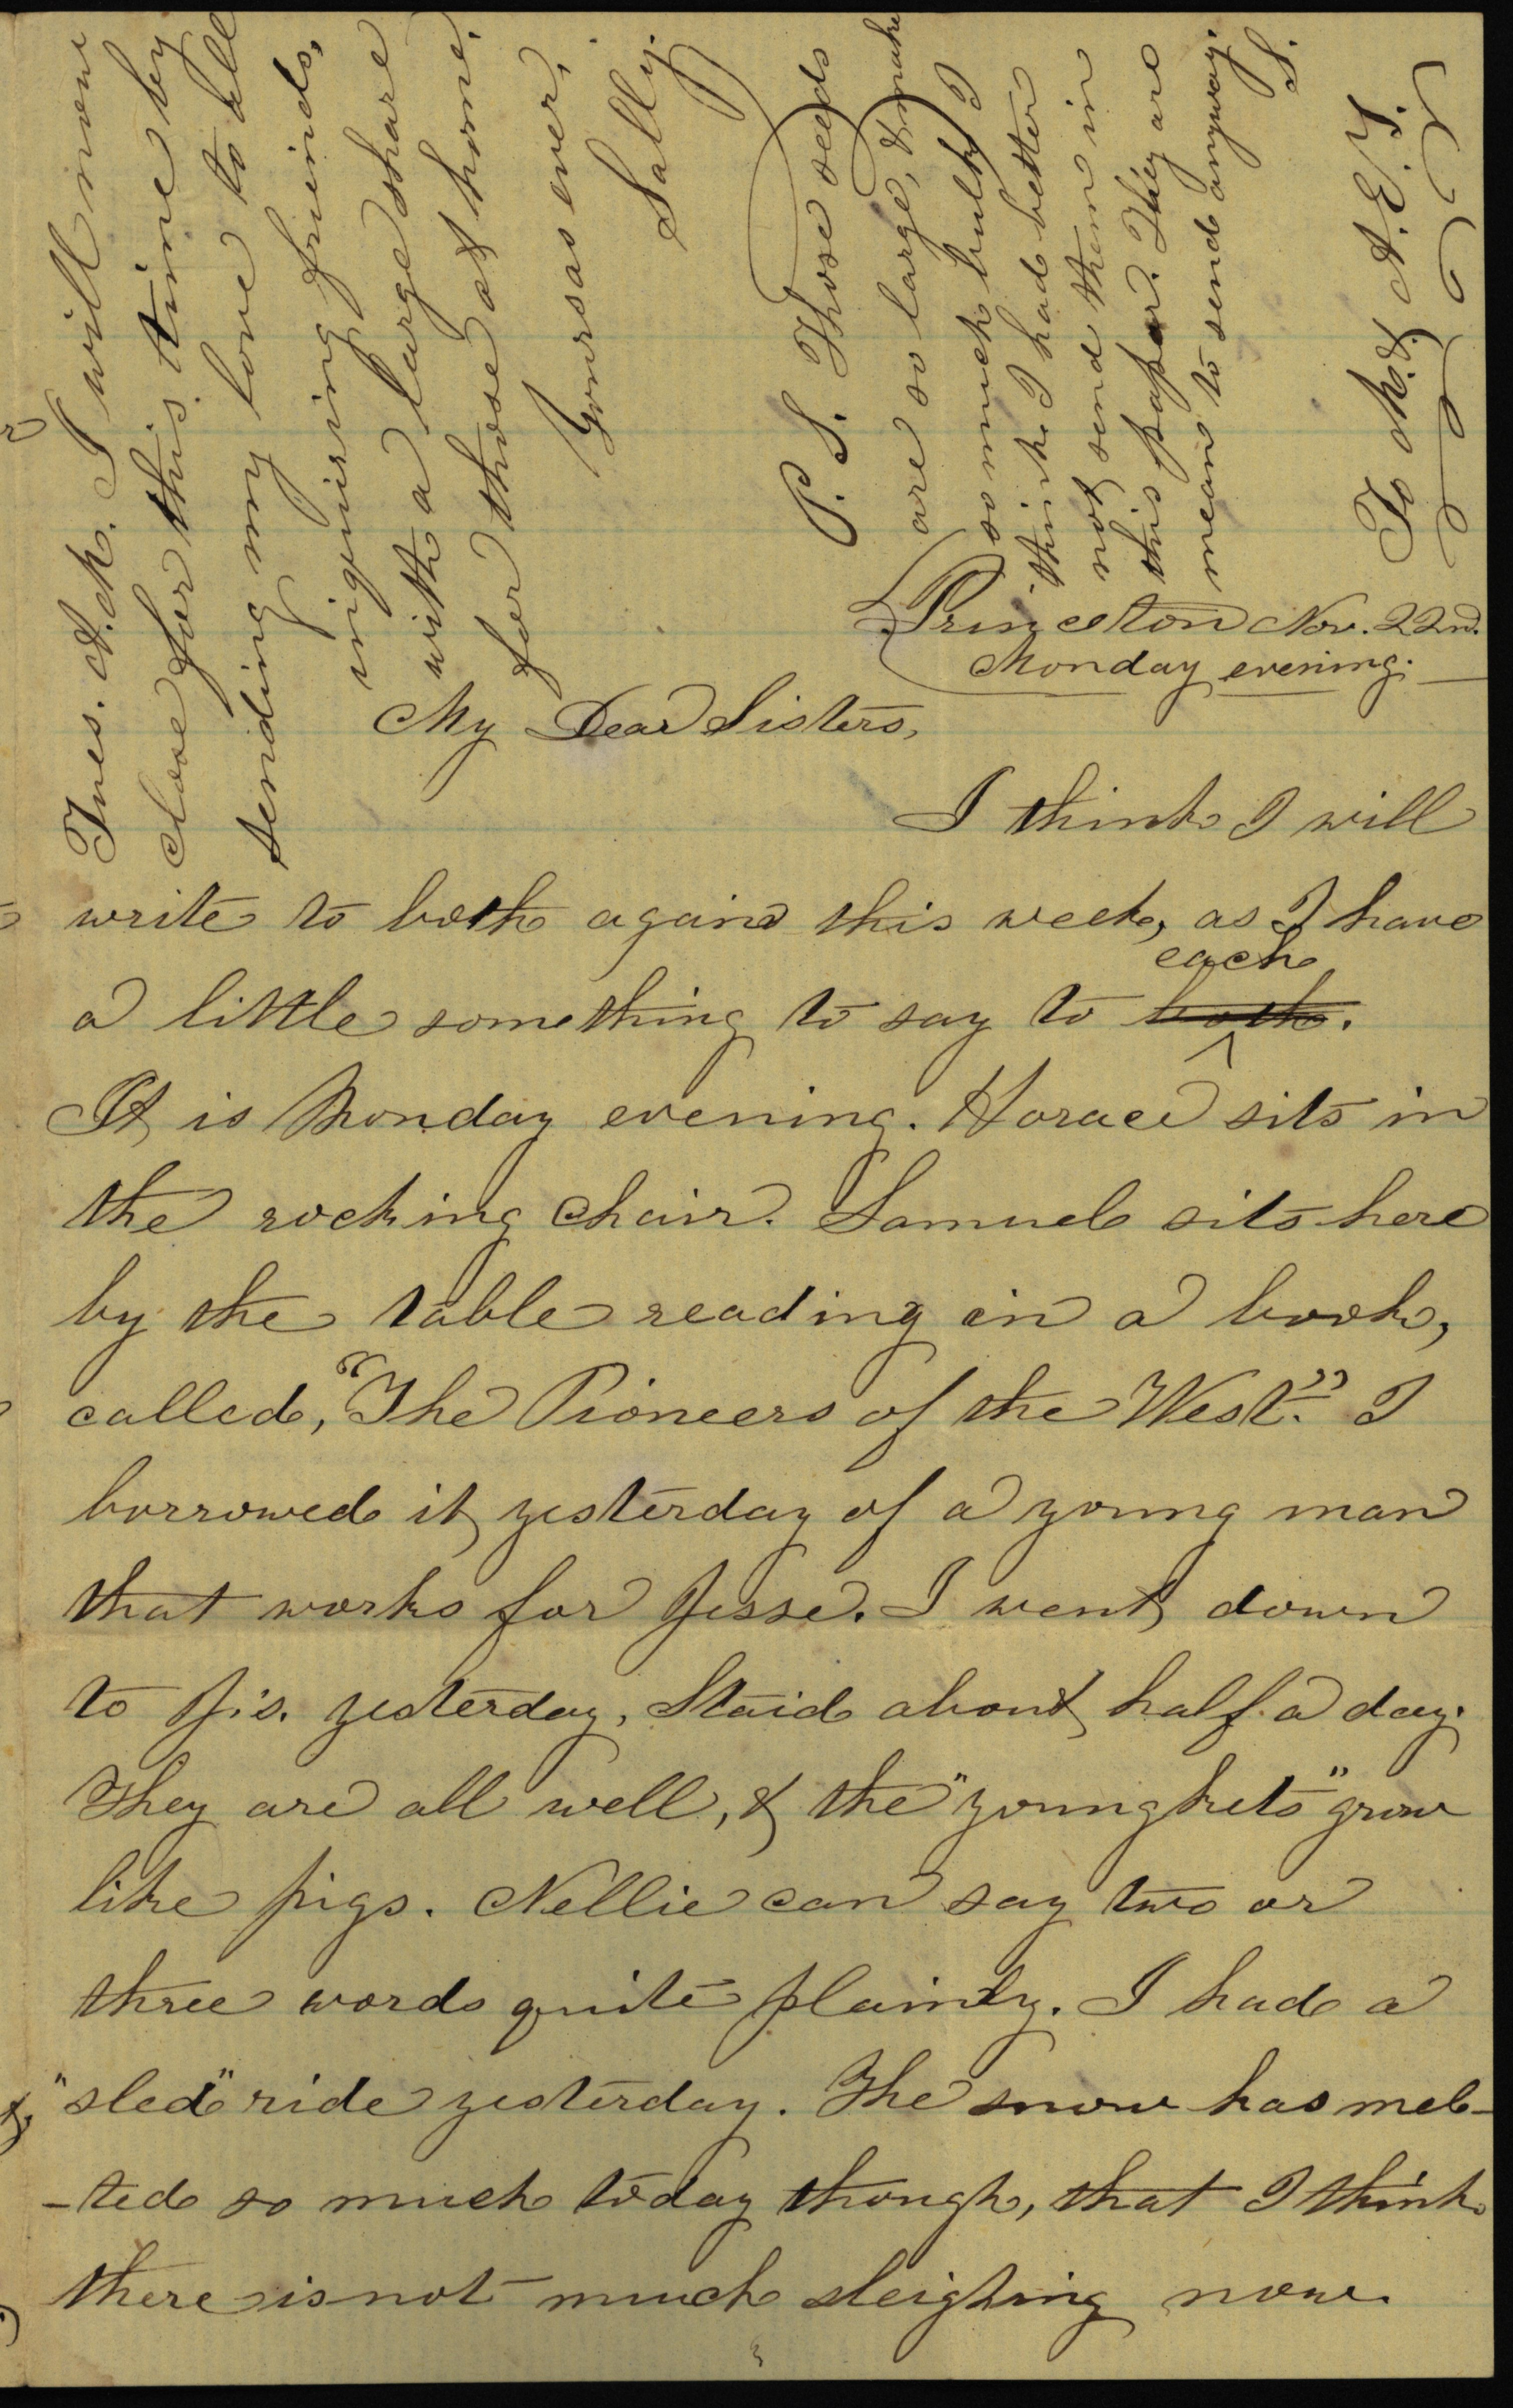 Princeton Nov. 22nd.
Monday evening.
My Dear Sisters,
I think I will
write to both again this week, as I have
a little something to say to both. each
It is Monday evening. Horace sits in
the rocking chair. Samuel sits here
by the table reading in a book,
called, "The Pioneers of the West." I
borrowed it yesterday of a young man
that works for Jesse. I went down
to J's. yesterday, Staid about half a day.
They are all well, & the "youngkets" grow
like pigs. Nellie can say two or
three words quite plainly. I had a
"sled" ride yesterday. The snow has mel-
-ted so much today though, that I think
there is not much sleighing now.
Tues. A.M. I will now
close for this time by
sending my love to all
inquiring friends,
with a large share
for those at home.
Yours as ever,
Sally.
P.S. Those seeds
are so large, & make
so much bulk I
think I had better
not send them in
this paper. They are
mean to send anyway.
S.
To M. & A.E.Y.